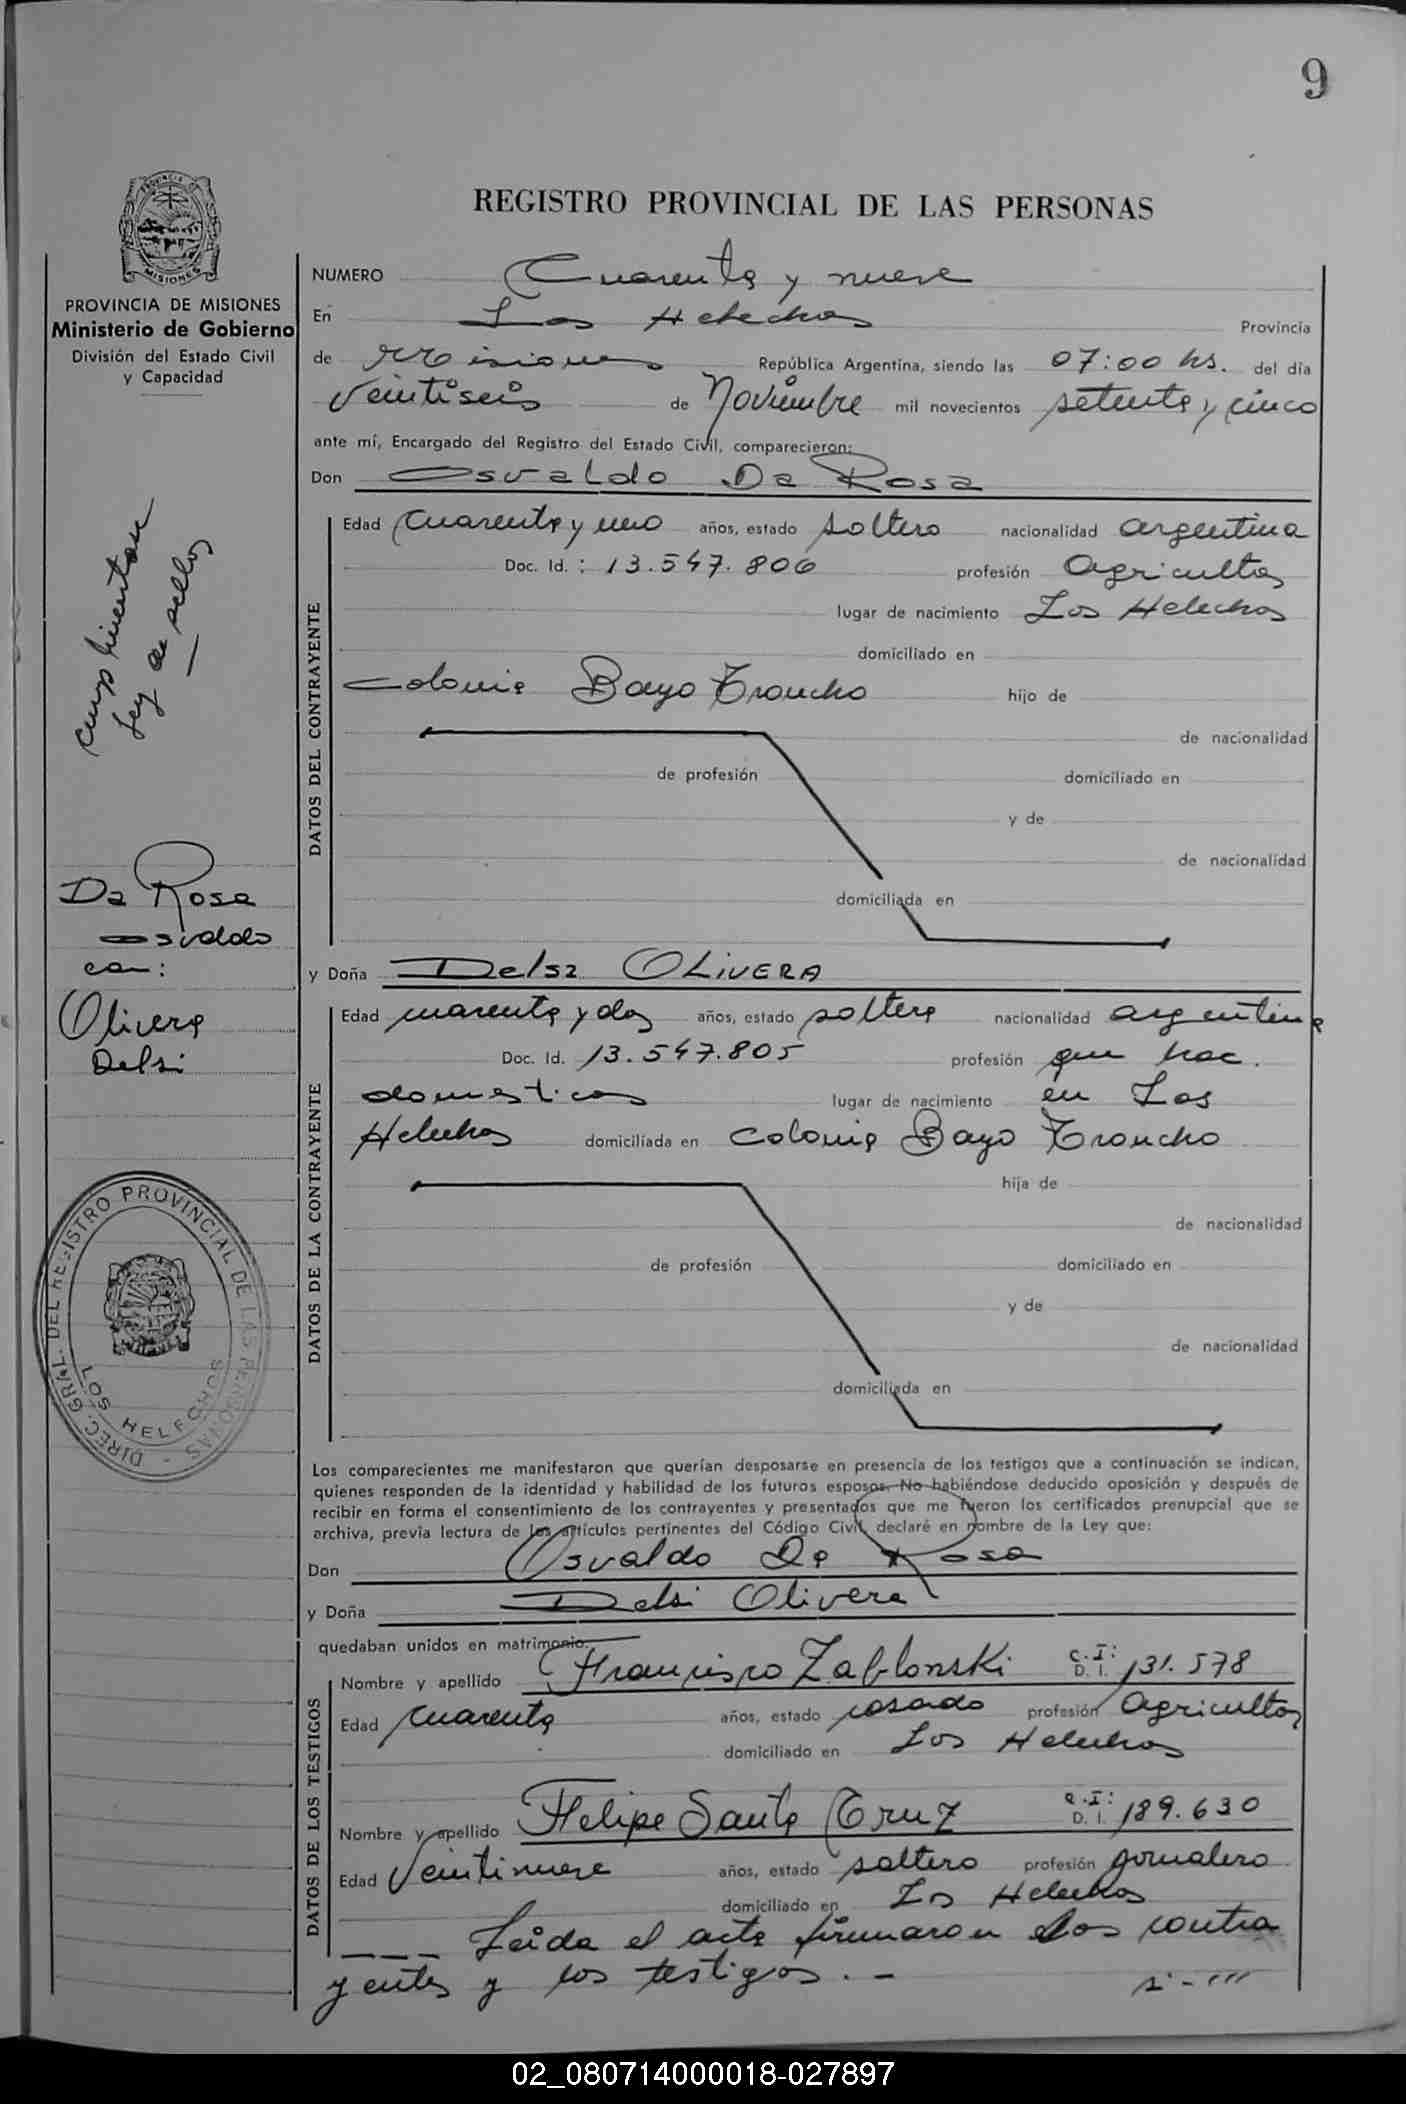 9
REGISTRO PROVINCIAL DE LAS PERSONAS
PROVINCIA DE MISIONES
Ministerio de Gobierno
División del Estado Civil
y Capacidad
NUMERO Cuarenta y nueve
En Los Helechos Provincia
de Misiones República Argentina, siendo las 07:00 hs. del día
Veintiseis de Noviembre mil novecientos setenta y cinco
ante mí, Encargado del Registro del Estado Civil, comparecieron:
Don Osvaldo Da Rosa
DATOS DEL CONTRAYENTE
Edad Cuarenta y uno años, estado soltero nacionalidad argentina
Doc. Id. : 13.547.806 profesión Agricultor
lugar de nacimiento Los Helechos
domiciliado en
Colonia Bayo Troncho hijo de
de nacionalidad
de profesión domiciliado en
y de
de nacionalidad
domiciliada en
y Doña Delsi OLIVERA
DATOS DE LA CONTRAYENTE
Edad cuarenta y dos años, estado soltera nacionalidad argentina
Doc. Id. 13.547.805 profesión que hac.
domesticos lugar de nacimiento en Los
Helechos domiciliada en Colonia Bayo Troncho
hija de
de nacionalidad
de profesión domiciliado en
y de
de nacionalidad
domiciliada en
Los comparecientes me manifestaron que querían desposarse en presencia de los testigos que a continuación se indican,
quienes responden de la identidad y habilidad de los futuros esposos. No habiéndose deducido oposición y después de
recibir en forma el consentimiento de los contrayentes y presentados que me fueron los certificados prenupcial que se
archiva, previa lectura de los artículos pertinentes del Código Civil, declaré en nombre de la Ley que:
Don Osvaldo Da Rosa
y Doña Delsi Olivera
quedaban unidos en matrimonio.
DATOS DE LOS TESTIGOS
Nombre y apellido Francisco Zablonski C.I: D. I. 131.578
Edad Cuarenta años, estado casado profesión Agricultor
domiciliado en Los Helechos
Nombre y apellido Felipe Santa Cruz C.I: D. I. 189.630
Edad Veintinueve años, estado soltero profesión jornalero
domiciliado en Los Helechos
Leida el acta firmaron los contra
yentes y los testigos. -
cumplimentan
Ley de sellos
Da Rosa
Osvaldo
con:
Olivera
Delsi
DIREC. GRAL. DEL REGISTRO PROVINCIAL DE LAS PERSONAS
LOS HELECHOS
02_080714000018-027897